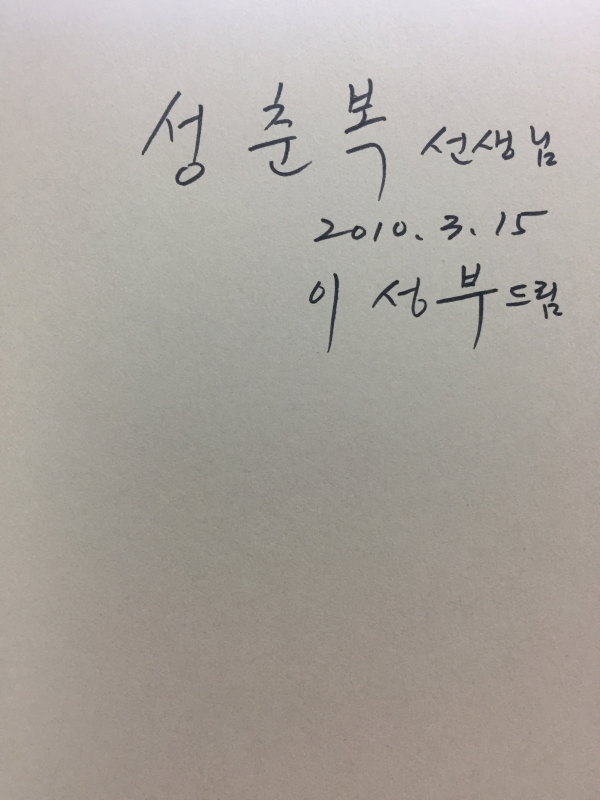 성춘복 선생님
2010. 3. 15
이성부 드림